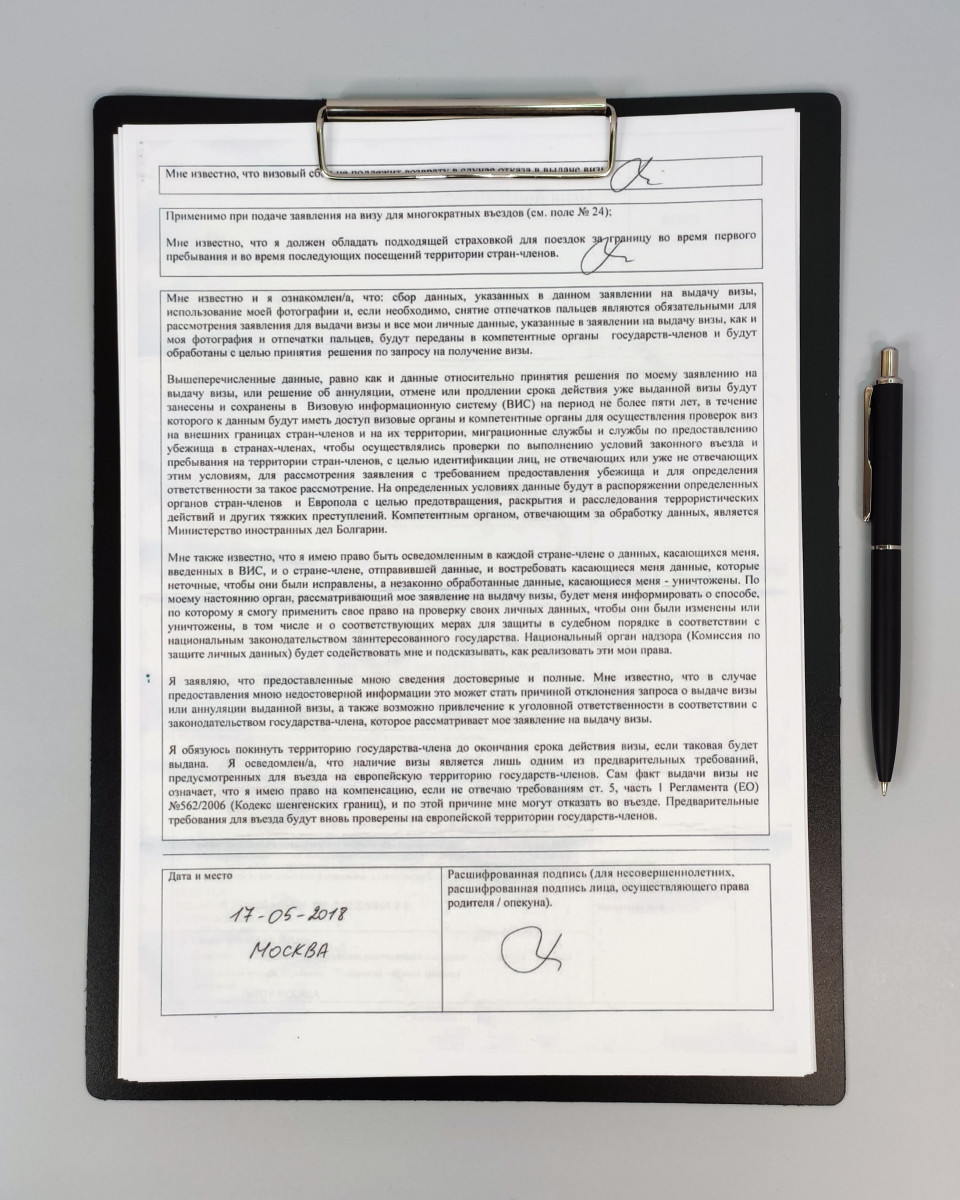 Мне известно, что визовый сбор не подлежит возврату в случае отказа в выдаче визы
Применимо при подаче заявления на визу для многократных въездов (см. поле № 24);
Мне известно, что я должен обладать подходящей страховкой для поездок за границу во время первого
пребывания и во время последующих посещений территории стран-членов.
Мне известно и я ознакомлен/а, что: сбор данных, указанных в данном заявлении на выдачу визы,
использование моей фотографии и, если необходимо, снятие отпечатков пальцев являются обязательными для
рассмотрения заявления для выдачи визы и все мои личные данные, указанные в заявлении на выдачу визы, как и
моя фотография и отпечатки пальцев, будут переданы в компетентные органы государств-членов и будут
обработаны с целью принятия решения по запросу на получение визы.
Вышеперечисленные данные, равно как и данные относительно принятия решения по моему заявлению на
выдачу визы, или решение об аннуляции, отмене или продлении срока действия уже выданной визы будут
занесены и сохранены в Визовую информационную систему (ВИС) на период не более пяти лет, в течение
которого к данным будут иметь доступ визовые органы и компетентные органы для осуществления проверок виз
на внешних границах стран-членов и на их территории, миграционные службы и службы по предоставлению
убежища в странах-членах, чтобы осуществлялись проверки по выполнению условий законного въезда и
пребывания на территории стран-членов, с целью идентификации лиц, не отвечающих или уже не отвечающих
этим условиям, для рассмотрения заявления с требованием предоставления убежища и для определения
ответственности за такое рассмотрение. На определенных условиях данные будут в распоряжении определенных
органов стран-членов и Европола с целью предотвращения, раскрытия и расследования террористических
действий и других тяжких преступлений. Компетентным органом, отвечающим за обработку данных, является
Министерство иностранных дел Болгарии.
Мне также известно, что я имею право быть осведомленным в каждой стране-члене о данных, касающихся меня,
введенных в ВИС, и о стране-члене, отправившей данные, и востребовать касающиеся меня данные, которые
неточные, чтобы они были исправлены, а незаконно обработанные данные, касающиеся меня - уничтожены. По
моему настоянию орган, рассматривающий мое заявление на выдачу визы, будет меня информировать о способе,
по которому я смогу применить свое право на проверку своих личных данных, чтобы они были изменены или
уничтожены, в том числе и о соответствующих мерах для защиты в судебном порядке в соответствии с
национальным законодательством заинтересованного государства. Национальный орган надзора (Комиссия по
защите личных данных) будет содействовать мне и подсказывать, как реализовать эти мои права.
Я заявляю, что предоставленные мною сведения достоверные и полные. Мне известно, что в случае
предоставления мною недостоверной информации это может стать причиной отклонения запроса о выдаче визы
или аннуляции выданной визы, а также возможно привлечение к уголовной ответственности в соответствии с
законодательством государства-члена, которое рассматривает мое заявление на выдачу визы.
Я обязуюсь покинуть территорию государства-члена до окончания срока действия визы, если таковая будет
выдана. Я осведомлен/а, что наличие визы является лишь одним из предварительных требований,
предусмотренных для въезда на европейскую территорию государств-членов. Сам факт выдачи визы не
означает, что я имею право на компенсацию, если не отвечаю требованиям ст. 5, часть 1 Регламента (ЕО)
№562/2006 (Кодекс шенгенских границ), и по этой причине мне могут отказать во въезде. Предварительные
требования для въезда будут вновь проверены на европейской территории государств-членов.
Дата и место
17-05-2018
МОСКВА
Расшифрованная подпись (для несовершеннолетних,
расшифрованная подпись лица, осуществляющего права
родителя / опекуна).